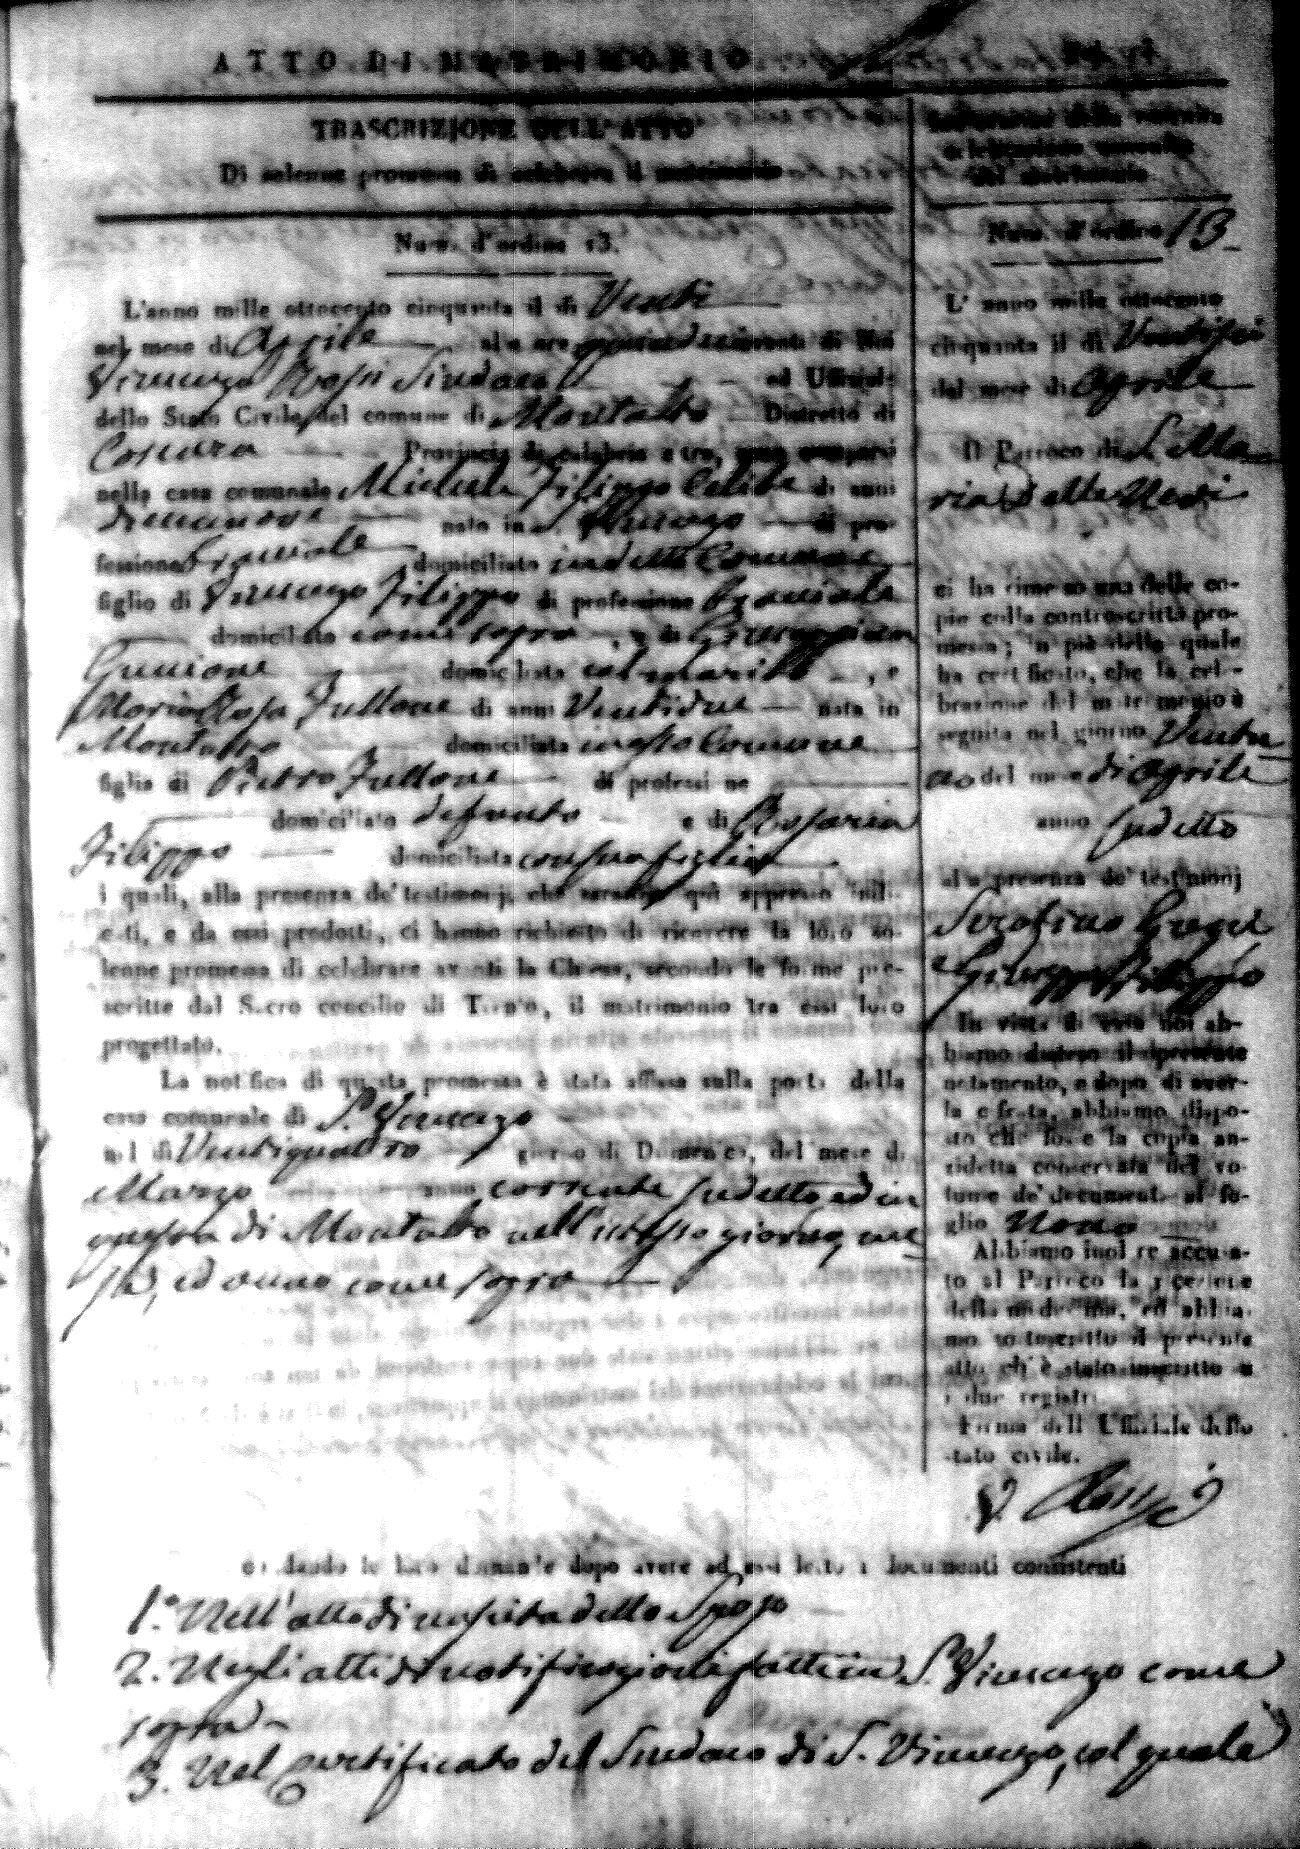 ATTO DI MATRIMONIO
TRASCRIZIONE DELL'ATTO
Di solenne promessa di celebrare il matrimonio
Num. d'ordine 13.
L'anno mille ottocento cinquanta il di Venti
nel mese di Aprile alle ore avanti di Noi
Vincenzo Rossi Sindaco ed Uffiziale
dello Stato Civile del comune di Montalto Distretto di
Cosenza Provincia di calabria citra, sono comparsi
nella casa comunale Michele Filippo Celibe di anni
diecinove nato in S. Vincenzo di pro-
fessione domiciliato in detto Comune
figlio di Vincenzo Filippo di professione
domiciliato come sopra, e di Giuseppina
domiciliata col marito, e
Maria Rosa Fullone di anni Ventidue nata in
Montalto domiciliata in esso Comune
figlia di Pietro Fullone di professi ne
domiciliato defunto e di Rosaria
Filippo domiciliata con sua figlia
i quali, alla presenza de' testimonj, che saranno quì appresso indi-
cati, e da essi prodotti, ci hanno richiesto di ricevere la loro so-
lenne promessa di celebrare avanti la Chiesa, secondo le forme pre-
scritte dal Sacro concilio di Trento, il matrimonio tra essi loro
progettato.
La notifica di questa promessa è stata affissa sulla porta della
casa comunale di S. Vincenzo
nel dì Ventiquattro giorno di Domenica, del mese di
Marzo anno corrente sudetto ed in
questa di Montalto nell'istesso giorno, me-
se, ed anno come sopra
ed dando le loro dimande dopo avere ad essi letto i documenti consistenti
1.° Nell'atto di nascita dello Sposo
2. Negli atti di notificazioni fatti in S. Vincenzo come
sopra
3. Nel certificato del Sindaco di S. Vincenzo, col quale
del matrimonio
Num. d'ordine 13
L'anno mille ottocento
cinquanta il dì Ventisei
del mese di Aprile
Il Parroco di S. Ma-
ria della Nevi
ci ha rimesso una delle co-
pie della controscritta pro-
messa; in piè della quale
ha certificato, che la cele-
brazione del matrimonio è
seguita nel giorno Ventu
no del mese di Aprile
anno sudetto
alla presenza de' testimonj
Serafino Greco
e Giuseppe Filippo
In vista di essa noi ab-
biamo disteso il presente
notamento, e dopo di aver-
la cifrata, abbiamo dispo-
sto che fosse la copia an-
zidetta conservata nel vo-
lume de' documenti al fo-
glio Nono
Abbiamo inoltre accusa-
to al Parroco la ricezione
della medesima, ed abbia-
mo sottoscritto il presente
atto ch'è stato inscritto a
i due registri
Firma dell Uffiziale dello
stato civile.
V. Rossi